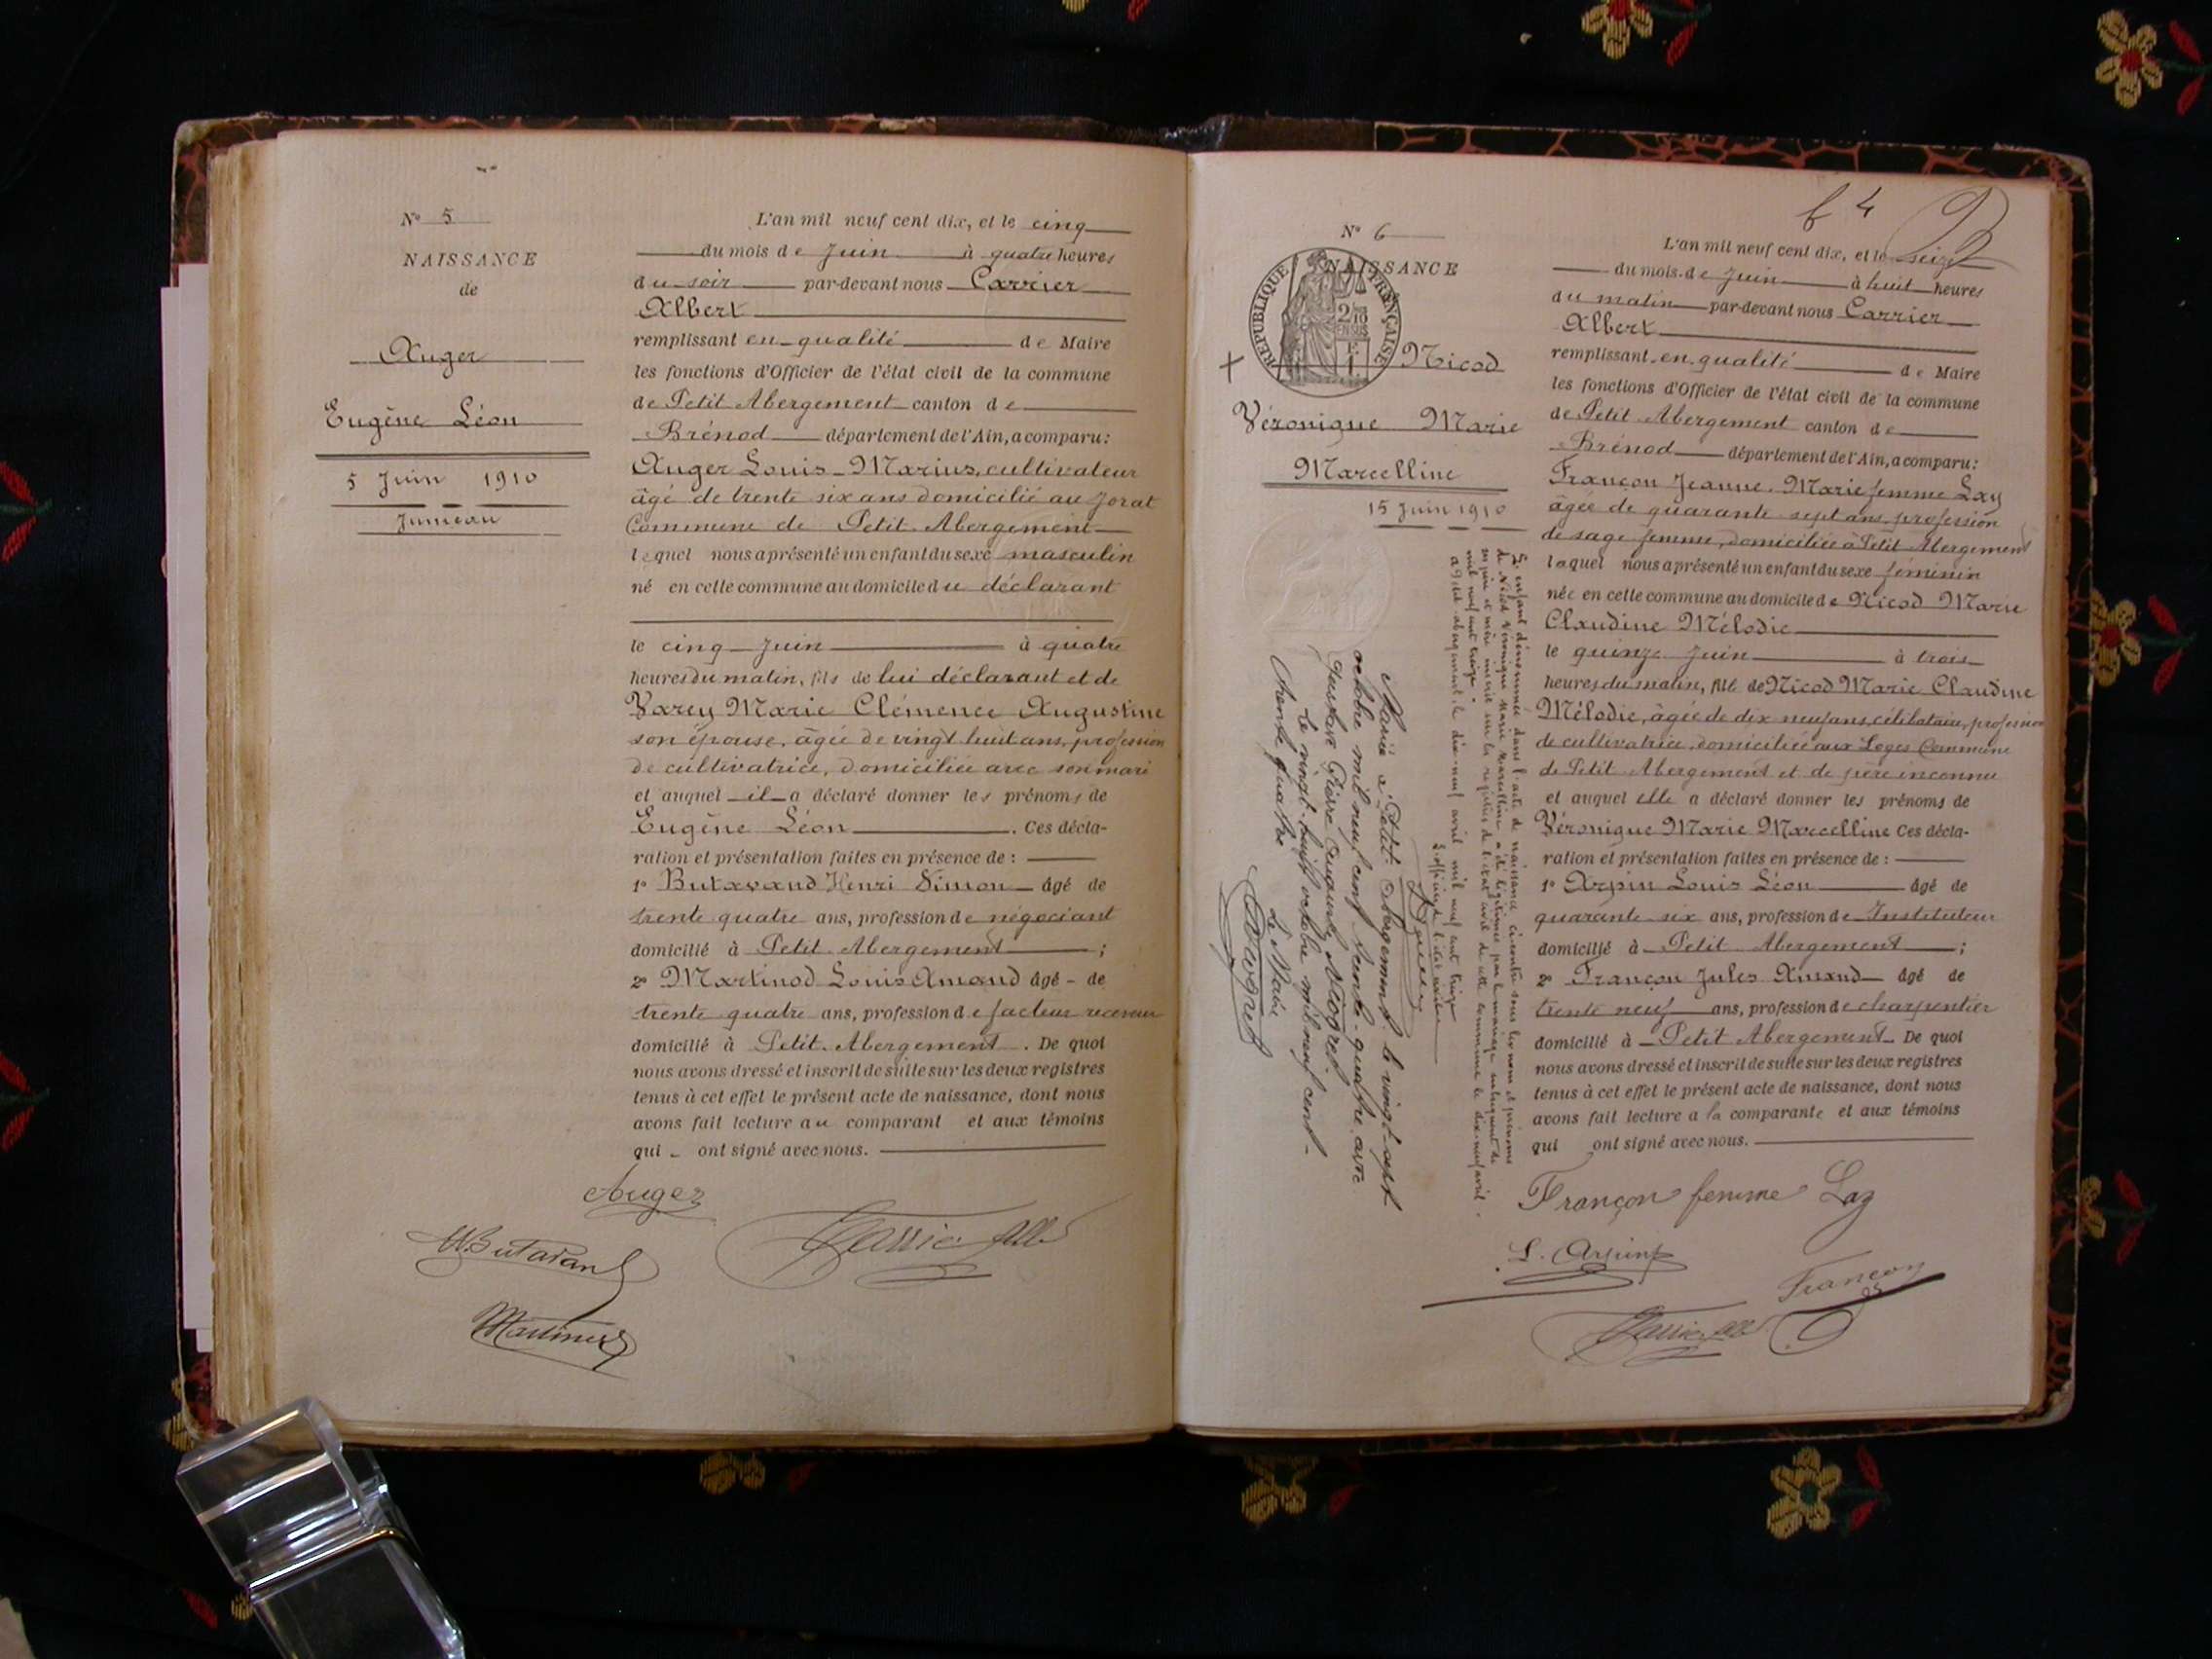 N° 5
NAISSANCE
de
Auger
Eugène Léon
5 Juin 1910
Jumeau
L'an mil neuf cent dix, et le cinq
du mois de Juin à quatre heures
du soir par-devant nous Carrier
Albert
remplissant en qualité de Maire
les fonctions d'Officier de l'état civil de la commune
de Petit Abergement canton de
Brénod département de l'Ain, a comparu:
Auger Louis-Marius, cultivateur
âgé de trente six ans domicilié au Jorat
Commune de Petit Abergement
lequel nous a présenté un enfant du sexe masculin
né en cette commune au domicile du déclarant
le cinq Juin à quatre
heures du matin, fils de lui déclarant et de
Varey Marie Clémence Augustine
son épouse, âgée de vingt huit ans, profession
de cultivatrice, domiciliée avec son mari
et auquel il a déclaré donner les prénoms de
Eugène Léon . Ces décla-
ration et présentation faites en présence de :
1° Butavand Henri Simon âgé de
trente quatre ans, profession de négociant
domicilié à Petit Abergement ;
2° Martinod Louis Amand âgé de
trente quatre ans, profession de facteur receveur
domicilié à Petit Abergement . De quoi
nous avons dressé et inscrit de suite sur les deux registres
tenus à cet effet le présent acte de naissance, dont nous
avons fait lecture au comparant et aux témoins
qui ont signé avec nous.
Auger
Butavand
Martinod
N° 6
NAISSANCE
RÉPUBLIQUE FRANÇAISE
2/10 EN SUS
Nicod
Véronique Marie
Marcelline
15 Juin 1910
L'enfant dénommée dans l'acte de naissance ci-contre sous les nom et prénoms
de Nicod Véronique Marie Marcelline a été légitimée par le mariage subséquent de
ses père et mère inscrit sur les registres de l'état civil de cette commune le dix-neuf avril
mil neuf cent treize
A Petit Abergement, le dix-neuf avril mil neuf cent treize
L'officier de l'état civil
Mariée à Petit Abergement le vingt-sept
octobre mil neuf cent trente-quatre avec
Gustave Pierre Auguste
Le vingt-huit octobre mil neuf cent-
trente quatre
Le Maire
f 4
L'an mil neuf cent dix, et le seize
du mois de Juin à huit heures
du matin par-devant nous Carrier
Albert
remplissant en qualité de Maire
les fonctions d'Officier de l'état civil de la commune
de Petit Abergement canton de
Brénod département de l'Ain, a comparu:
Françon Jeanne-Marie femme Lay
âgée de quarante sept ans, profession
de sage femme, domiciliée à Petit Abergement
laquel nous a présenté un enfant du sexe féminin
née en cette commune au domicile de Nicod Marie
Claudine Mélodie
le quinze Juin à trois
heures du matin, fille de Nicod Marie Claudine
Mélodie, âgée de dix neuf ans, célibataire, profession
de cultivatrice, domiciliée aux Loges Commune
de Petit Abergement et de père inconnu
et auquel elle a déclaré donner les prénoms de
Véronique Marie Marcelline Ces décla-
ration et présentation faites en présence de :
1° Arpin Louis Léon âgé de
quarante six ans, profession de Instituteur
domicilié à Petit Abergement ;
2° Françon Jules Amand âgé de
trente neuf ans, profession de charpentier
domicilié à Petit Abergement. De quoi
nous avons dressé et inscrit de suite sur les deux registres
tenus à cet effet le présent acte de naissance, dont nous
avons fait lecture a la comparante et aux témoins
qui ont signé avec nous.
Françon femme Lay
L. Arpin
Françon